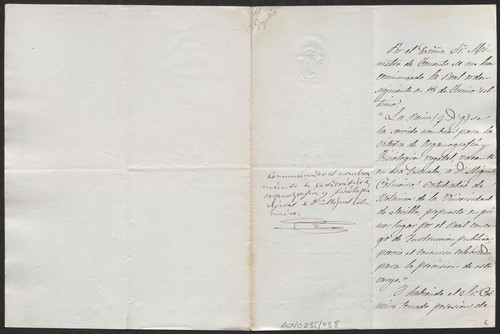 Julio
Por el Excmo. Sr. Mi-
nistro de Fomento se me ha
comunicado la Real orden
siguiente en 18 de Junio úl-
timo.
"La Reina (q. D. g.) se
ha servido nombrar para la
cátedra de Organografía y
Fisiología vegetal, vacante
en esa Escuela, a D. Miguel
Colmeiro, catedrático de
Botánica de la Universidad
de Sevilla, propuesto en pri-
mer lugar por el Real Conse-
jo de Instrucción pública
para el concurso celebrado
para la provisión de este
cargo."
Y habiendo el Sr. Col-
meiro tomado posesión de
Comunicando el nombra-
miento de catedrático de
organografía y fisiología
vegetal a D. Miguel Col-
meiro.